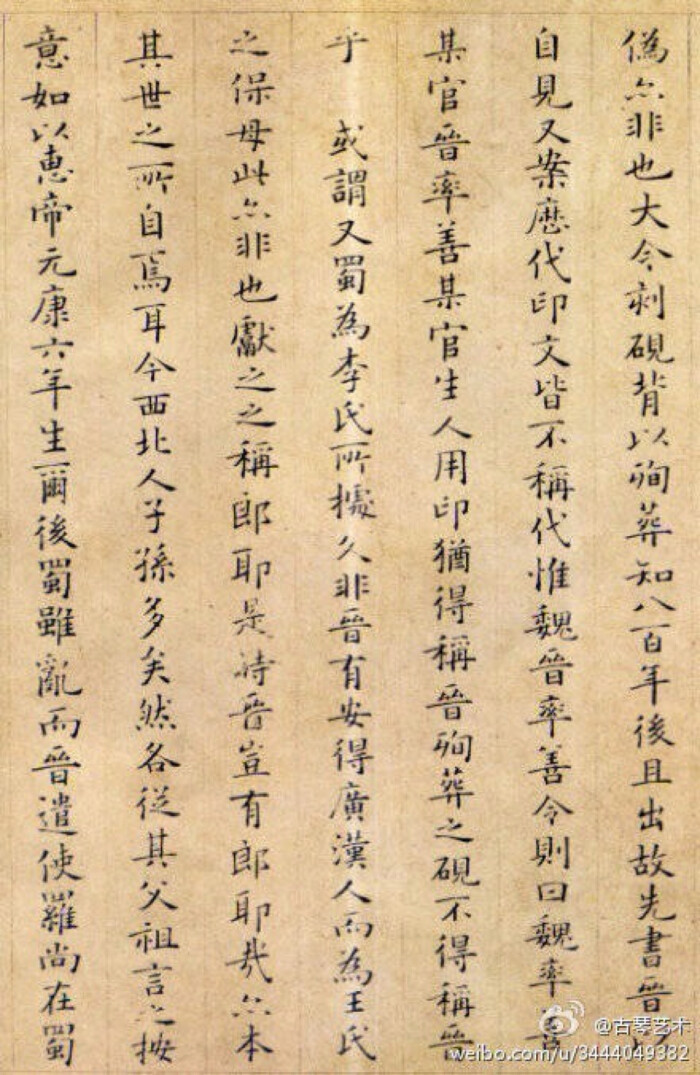 偽亦非也大令刻硯背以殉葬知八百年後且出故先書晉以
自見又案歷代印文皆不稱代惟魏晉率善令則曰魏率善
某官晉率善某官生人用印猶得稱晉殉葬之硯不得稱晉
乎　或謂又蜀為李氏所據久非晉有安得廣漢人而為王氏
之保母此亦非也獻之之稱郎耶是時晉豈有郎耶哉亦本
其世之所自焉耳今西北人子孫多矣然各從其父祖言之按
意如以惠帝元康六年生爾後蜀雖亂而晉遣使羅尚在蜀
@古琴艺术
weibo.com/u/3444049382